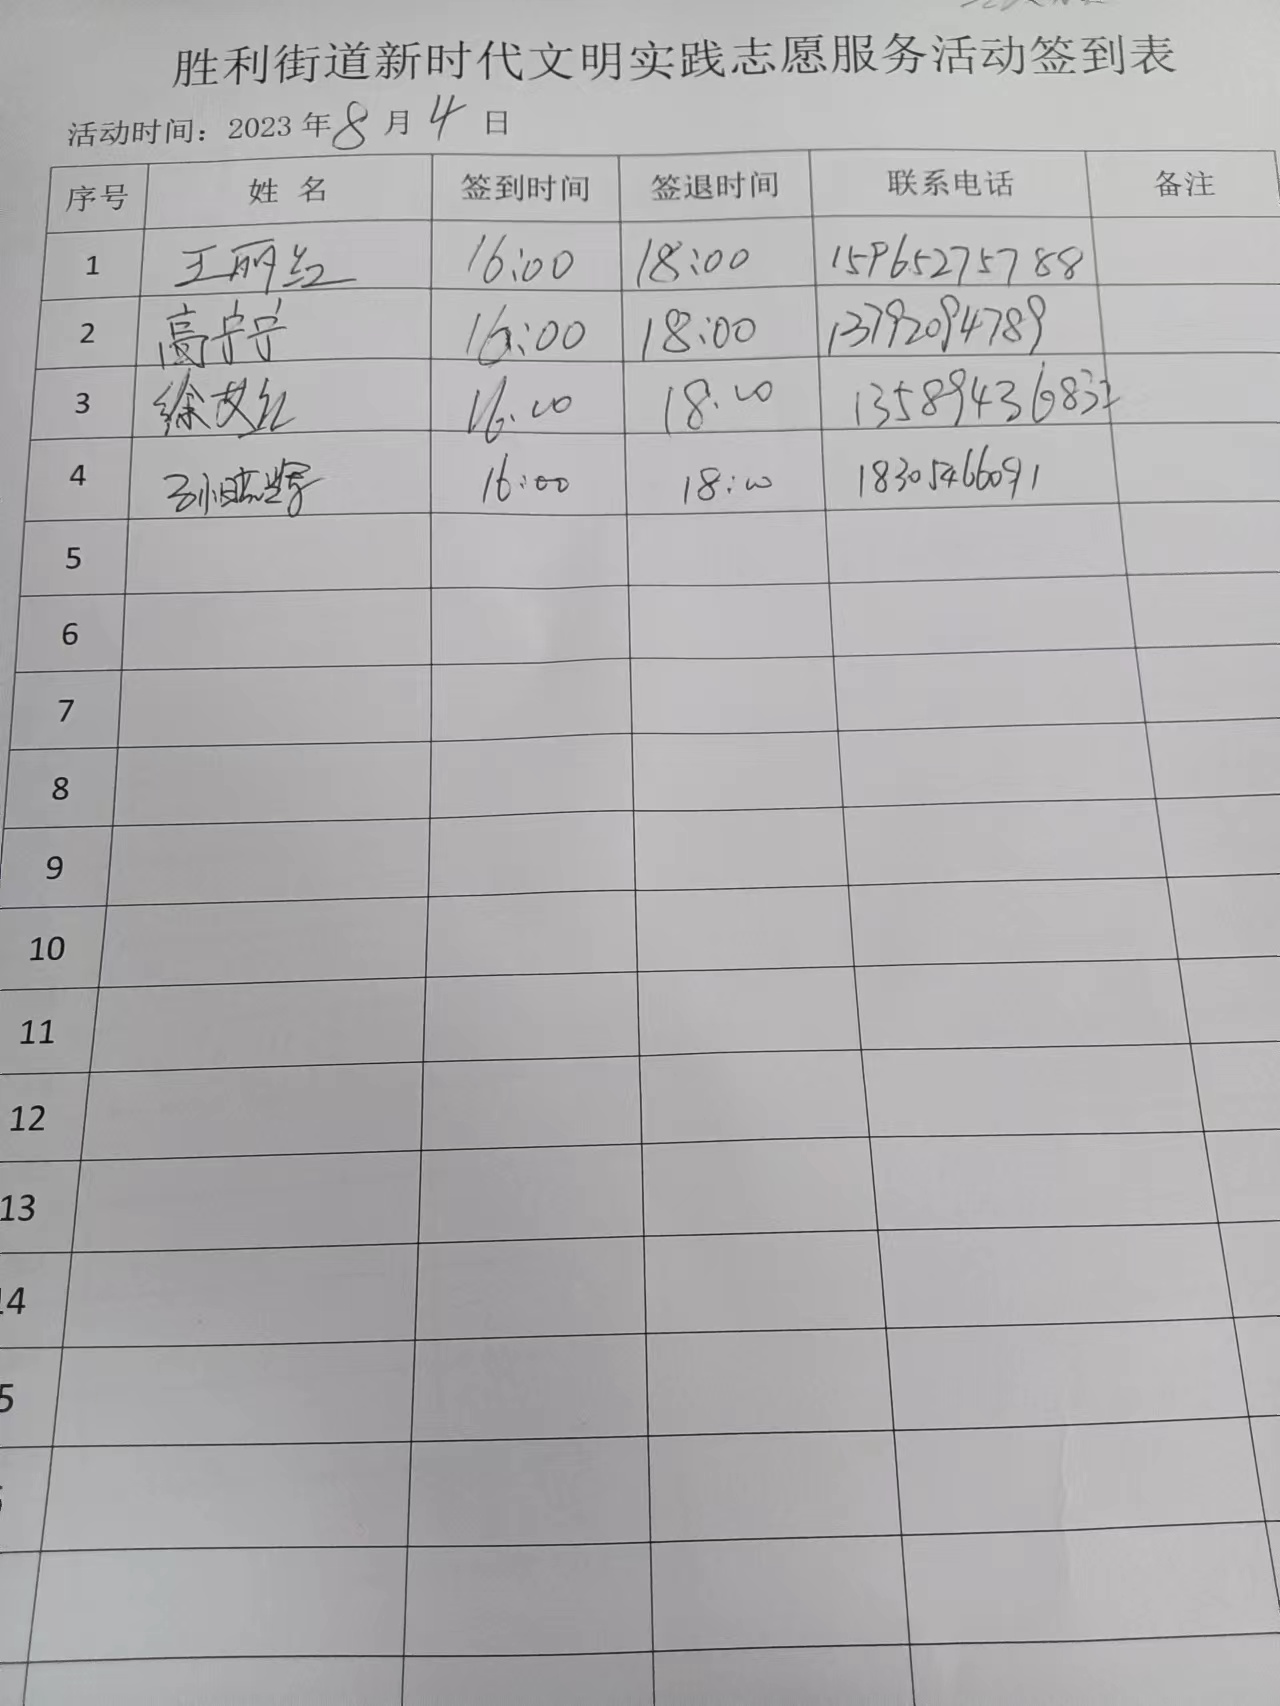 胜利街道新时代文明实践志愿服务活动签到表
活动时间：2023年8月4日
序号 姓名 签到时间 签退时间 联系电话 备注
1 王丽红 16:00 18:00 15965275788
2 高宁宁 16:00 18:00 13792094789
3 徐艾红 16:00 18:00
4 16:00 18:00 18305466091
5
6
7
8
9
10
11
12
13
14
5